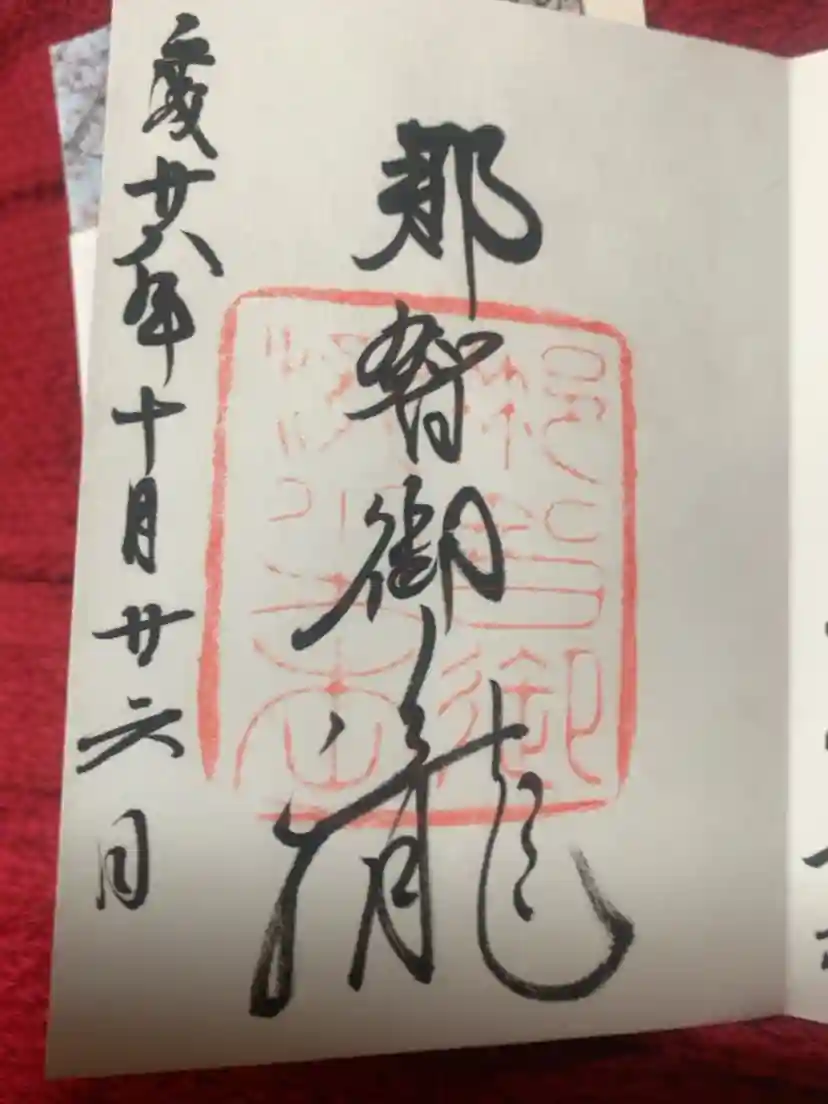 那智御瀧
平成廿八年十月廿六日